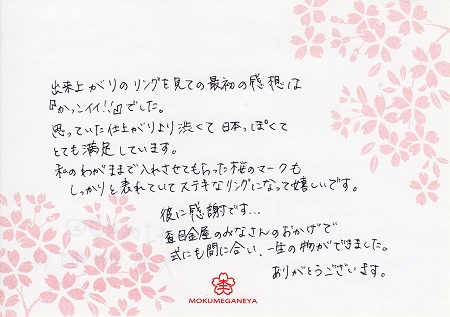 出来上がりのリングを見ての最初の感想は
『かっこイイ!!』でした。
思っていた仕上がりより渋くて日本っぽくて
とても満足しています。
私のわがままで入れさせてもらった桜のマークも
しっかりと表れていてステキなリングになって嬉しいです。
彼に感謝です…
杢目金屋のみなさんのおかげで
式にも間に合い、一生の物ができました。
ありがとうございます。
MOKUMEGANEYA